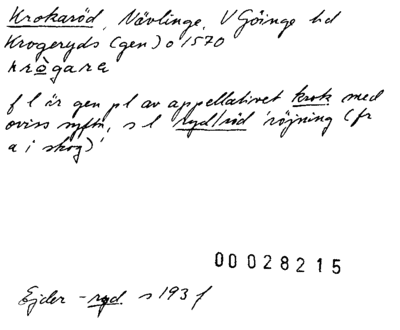 Krokaröd, Nävlinge, V Göinge hd
Krogeryds (gen) o 1570
krògara
f l är gen pl av appellativet krok med
oviss syftn, s l ryd/röd 'röjning (fr
a i skog)'
00028215
Ejder -ryd. s 193 f